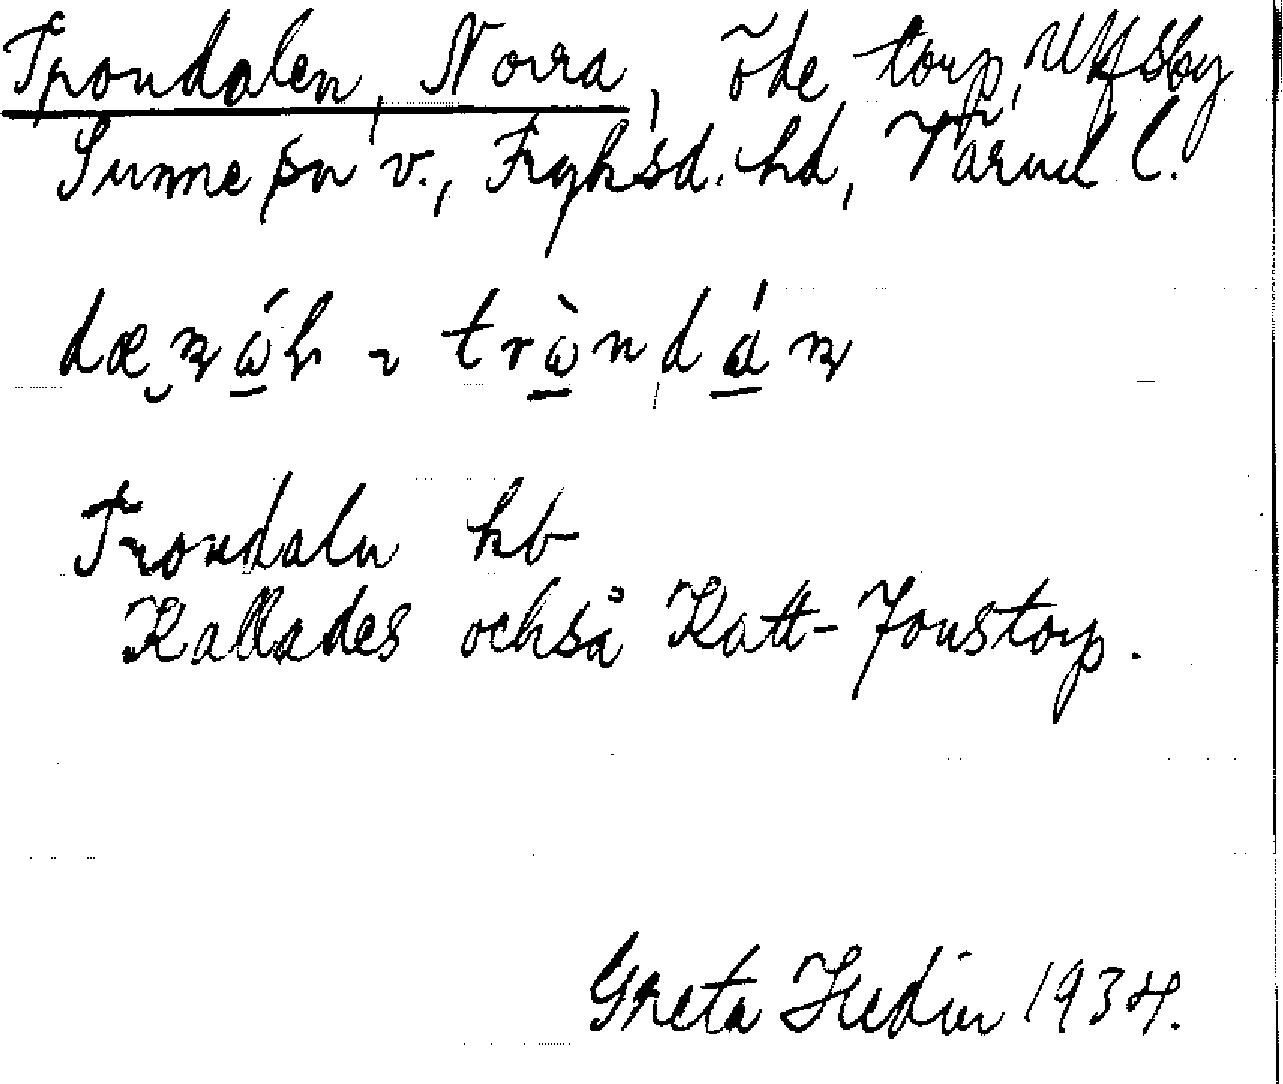 Trondalen, Norra, öde torp, Ulfsby
Sunne sn v., Fryksd. hd, Värml l.
Trondaln hb
Kallades också Katt-Jonstorp.
Greta Hedin 1934.